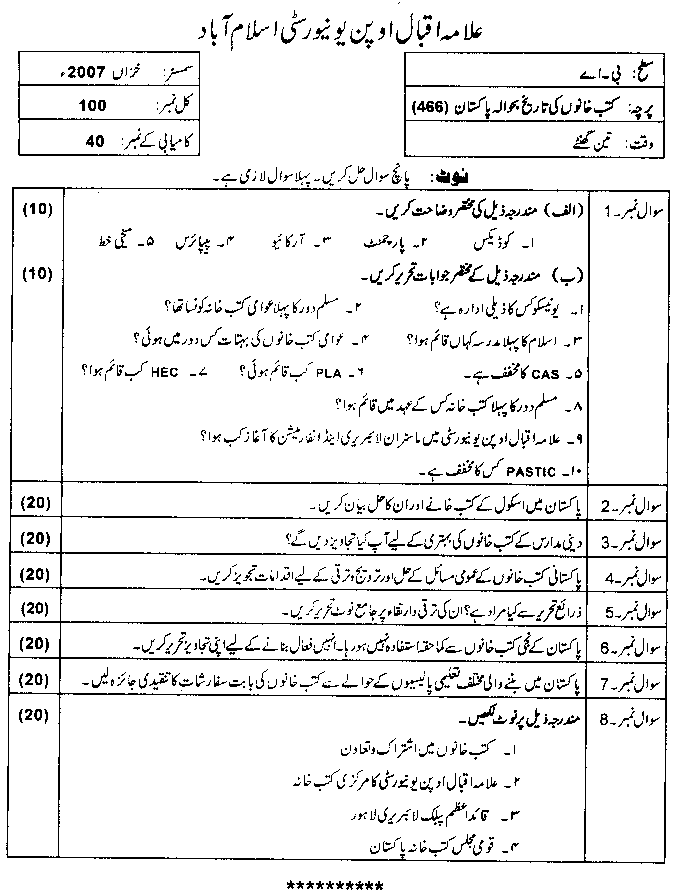 علامہ اقبال اوپن یونیورسٹی اسلام آباد
سطح: بی۔اے
سمسٹر: خزاں 2007ء
پرچہ: کتب خانوں کی تاریخ بحوالہ پاکستان (466)
کل نمبر: 100
وقت: تین گھنٹے
کامیابی کے نمبر: 40
نوٹ: پانچ سوال حل کریں۔ پہلا سوال لازمی ہے۔
سوال نمبر۔1 (الف) مندرجہ ذیل کی مختصر وضاحت کریں۔ (10)
۱۔ کوڈیکس ۲۔ پارچمنٹ ۳۔ آرکائیو ۴۔ پیپائرس ۵۔ میخی خط
(ب) مندرجہ ذیل کے مختصر جوابات تحریر کریں۔ (10)
۱۔ یونیسکو کس کا ذیلی ادارہ ہے؟ ۲۔ مسلم دور کا پہلا عوامی کتب خانہ کونسا تھا؟
۳۔ اسلام کا پہلا مدرسہ کہاں قائم ہوا؟ ۴۔ عوامی کتب خانوں کی بہتات کس دور میں ہوئی؟
۵۔ CAS کا مخفف ہے۔ ۶۔ PLA کب قائم ہوئی؟ ۷۔ HEC کب قائم ہوا؟
۸۔ مسلم دور کا پہلا کتب خانہ کس کے عہد میں قائم ہوا؟
۹۔ علامہ اقبال اوپن یونیورسٹی میں ماسٹر ان لائبریری اینڈ انفارمیشن کا آغاز کب ہوا؟
۱۰۔ PASTIC کس کا مخفف ہے۔
سوال نمبر۔2 پاکستان میں اسکول کے کتب خانے اور ان کا حل بیان کریں۔ (20)
سوال نمبر۔3 دینی مدارس کے کتب خانوں کی بہتری کے لیے آپ کیا تجاویز دیں گے؟ (20)
سوال نمبر۔4 پاکستانی کتب خانوں کے عمومی مسائل کے حل اور ترویج و ترقی کے لیے اقدامات تجویز کریں۔ (20)
سوال نمبر۔5 ذرائع تحریر سے کیا مراد ہے؟ ان کی ترقی و ارتقاء پر جامع نوٹ تحریر کریں۔ (20)
سوال نمبر۔6 پاکستان کے نجی کتب خانوں سے کما حقہ استفادہ نہیں ہو رہا۔ انہیں فعال بنانے کے لیے اپنی تجاویز تحریر کریں۔ (20)
سوال نمبر۔7 پاکستان میں بننے والی مختلف تعلیمی پالیسیوں کے حوالے سے کتب خانوں کی بابت سفارشات کا تنقیدی جائزہ لیں۔ (20)
سوال نمبر۔8 مندرجہ ذیل پر نوٹ لکھیں۔ (20)
۱۔ کتب خانوں میں اشتراک و تعاون
۲۔ علامہ اقبال اوپن یونیورسٹی کا مرکزی کتب خانہ
۳۔ قائداعظم پبلک لائبریری لاہور
۴۔ قومی مجلس کتب خانہ پاکستان
**********